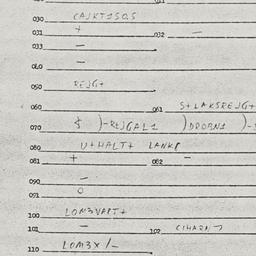 030 CAJKT1505
031 + 032 —
033 —
040 —
050 REJG+
060 061 S+LAKSREJG+
070 $ )-REJGAL1 )DROBN1 )-
080 U+HALT+ LANKP
081 + 082 —
090 —
091 0
100 LOM3VART+
101 — 102
110 LOM3X/-